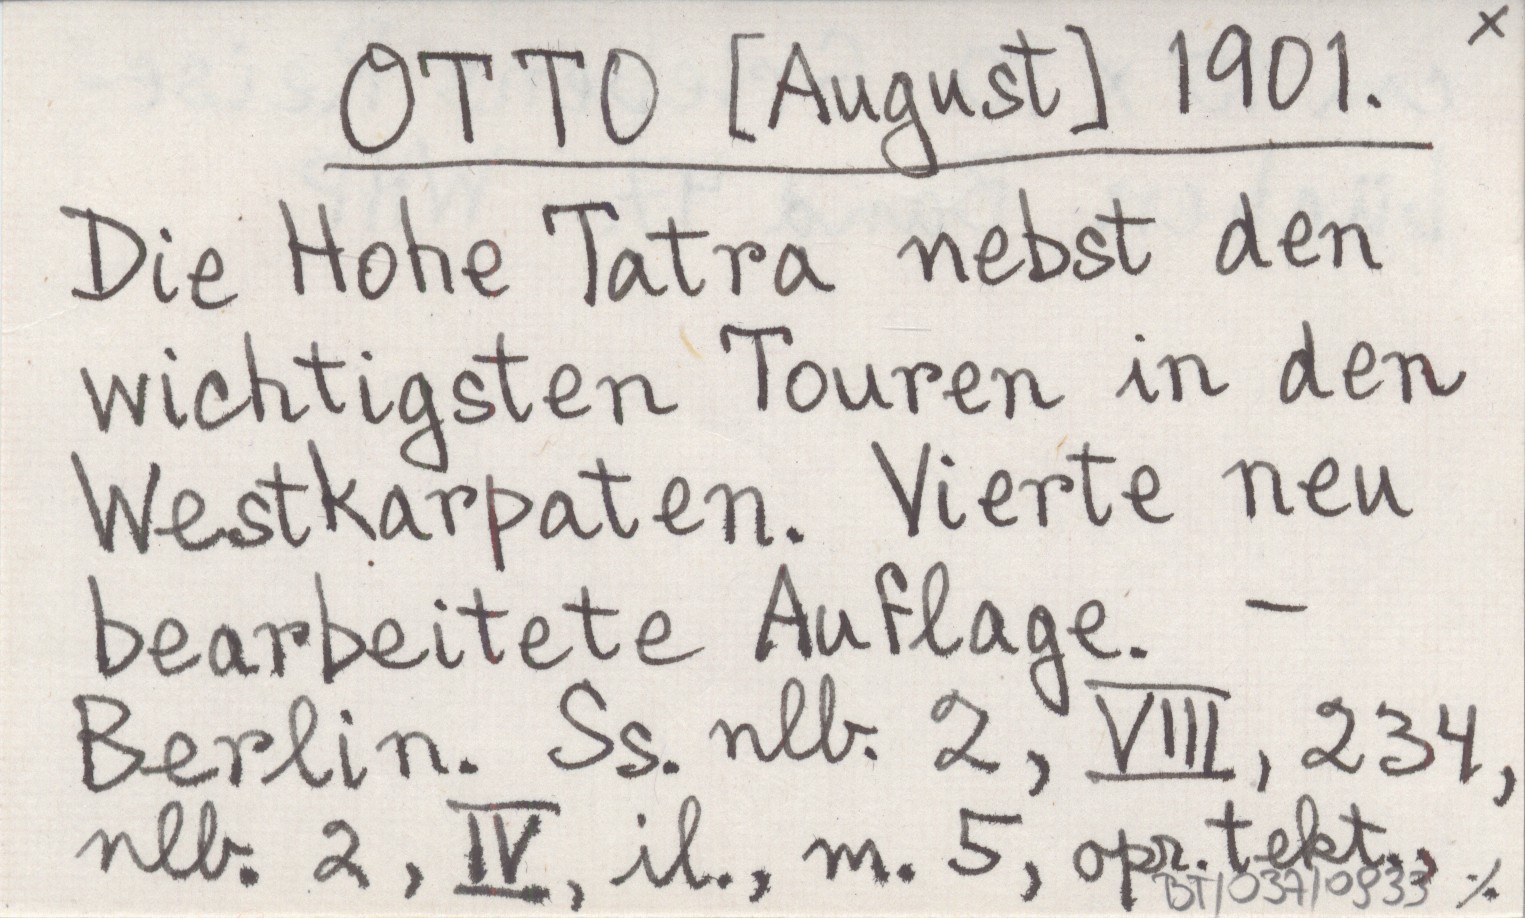 OTTO [August] 1901. ×
Die Hohe Tatra nebst den
wichtigsten Touren in den
Westkarpaten. Vierte neu
bearbeitete Auflage. –
Berlin. Ss. nlb. 2, VIII, 234,
nlb. 2, IV, il., m. 5, opr. tekt., ⁒
BT/037/0933